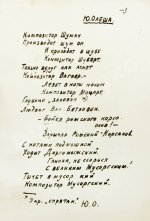 Ю. ОЛЕША.
Композитор Шуман
Производит шум он
И приходит в шубе
Композитор Шуберт.
Только вдруг как
Композитор Вагнер.
Лезет в ноты нашей
Композитор Моцарт
Глубоко "закован"
Людвиг Ван Бетховен.
- Бойся рижского
Закричал Римский-Корсаков.
С нотами подмышкой
Ходит Даргомыжский.
Глинка, не ссорься
С великим Мусоргским!
Тычет в мусор
Композитор Мусоргский.
Ю.О.